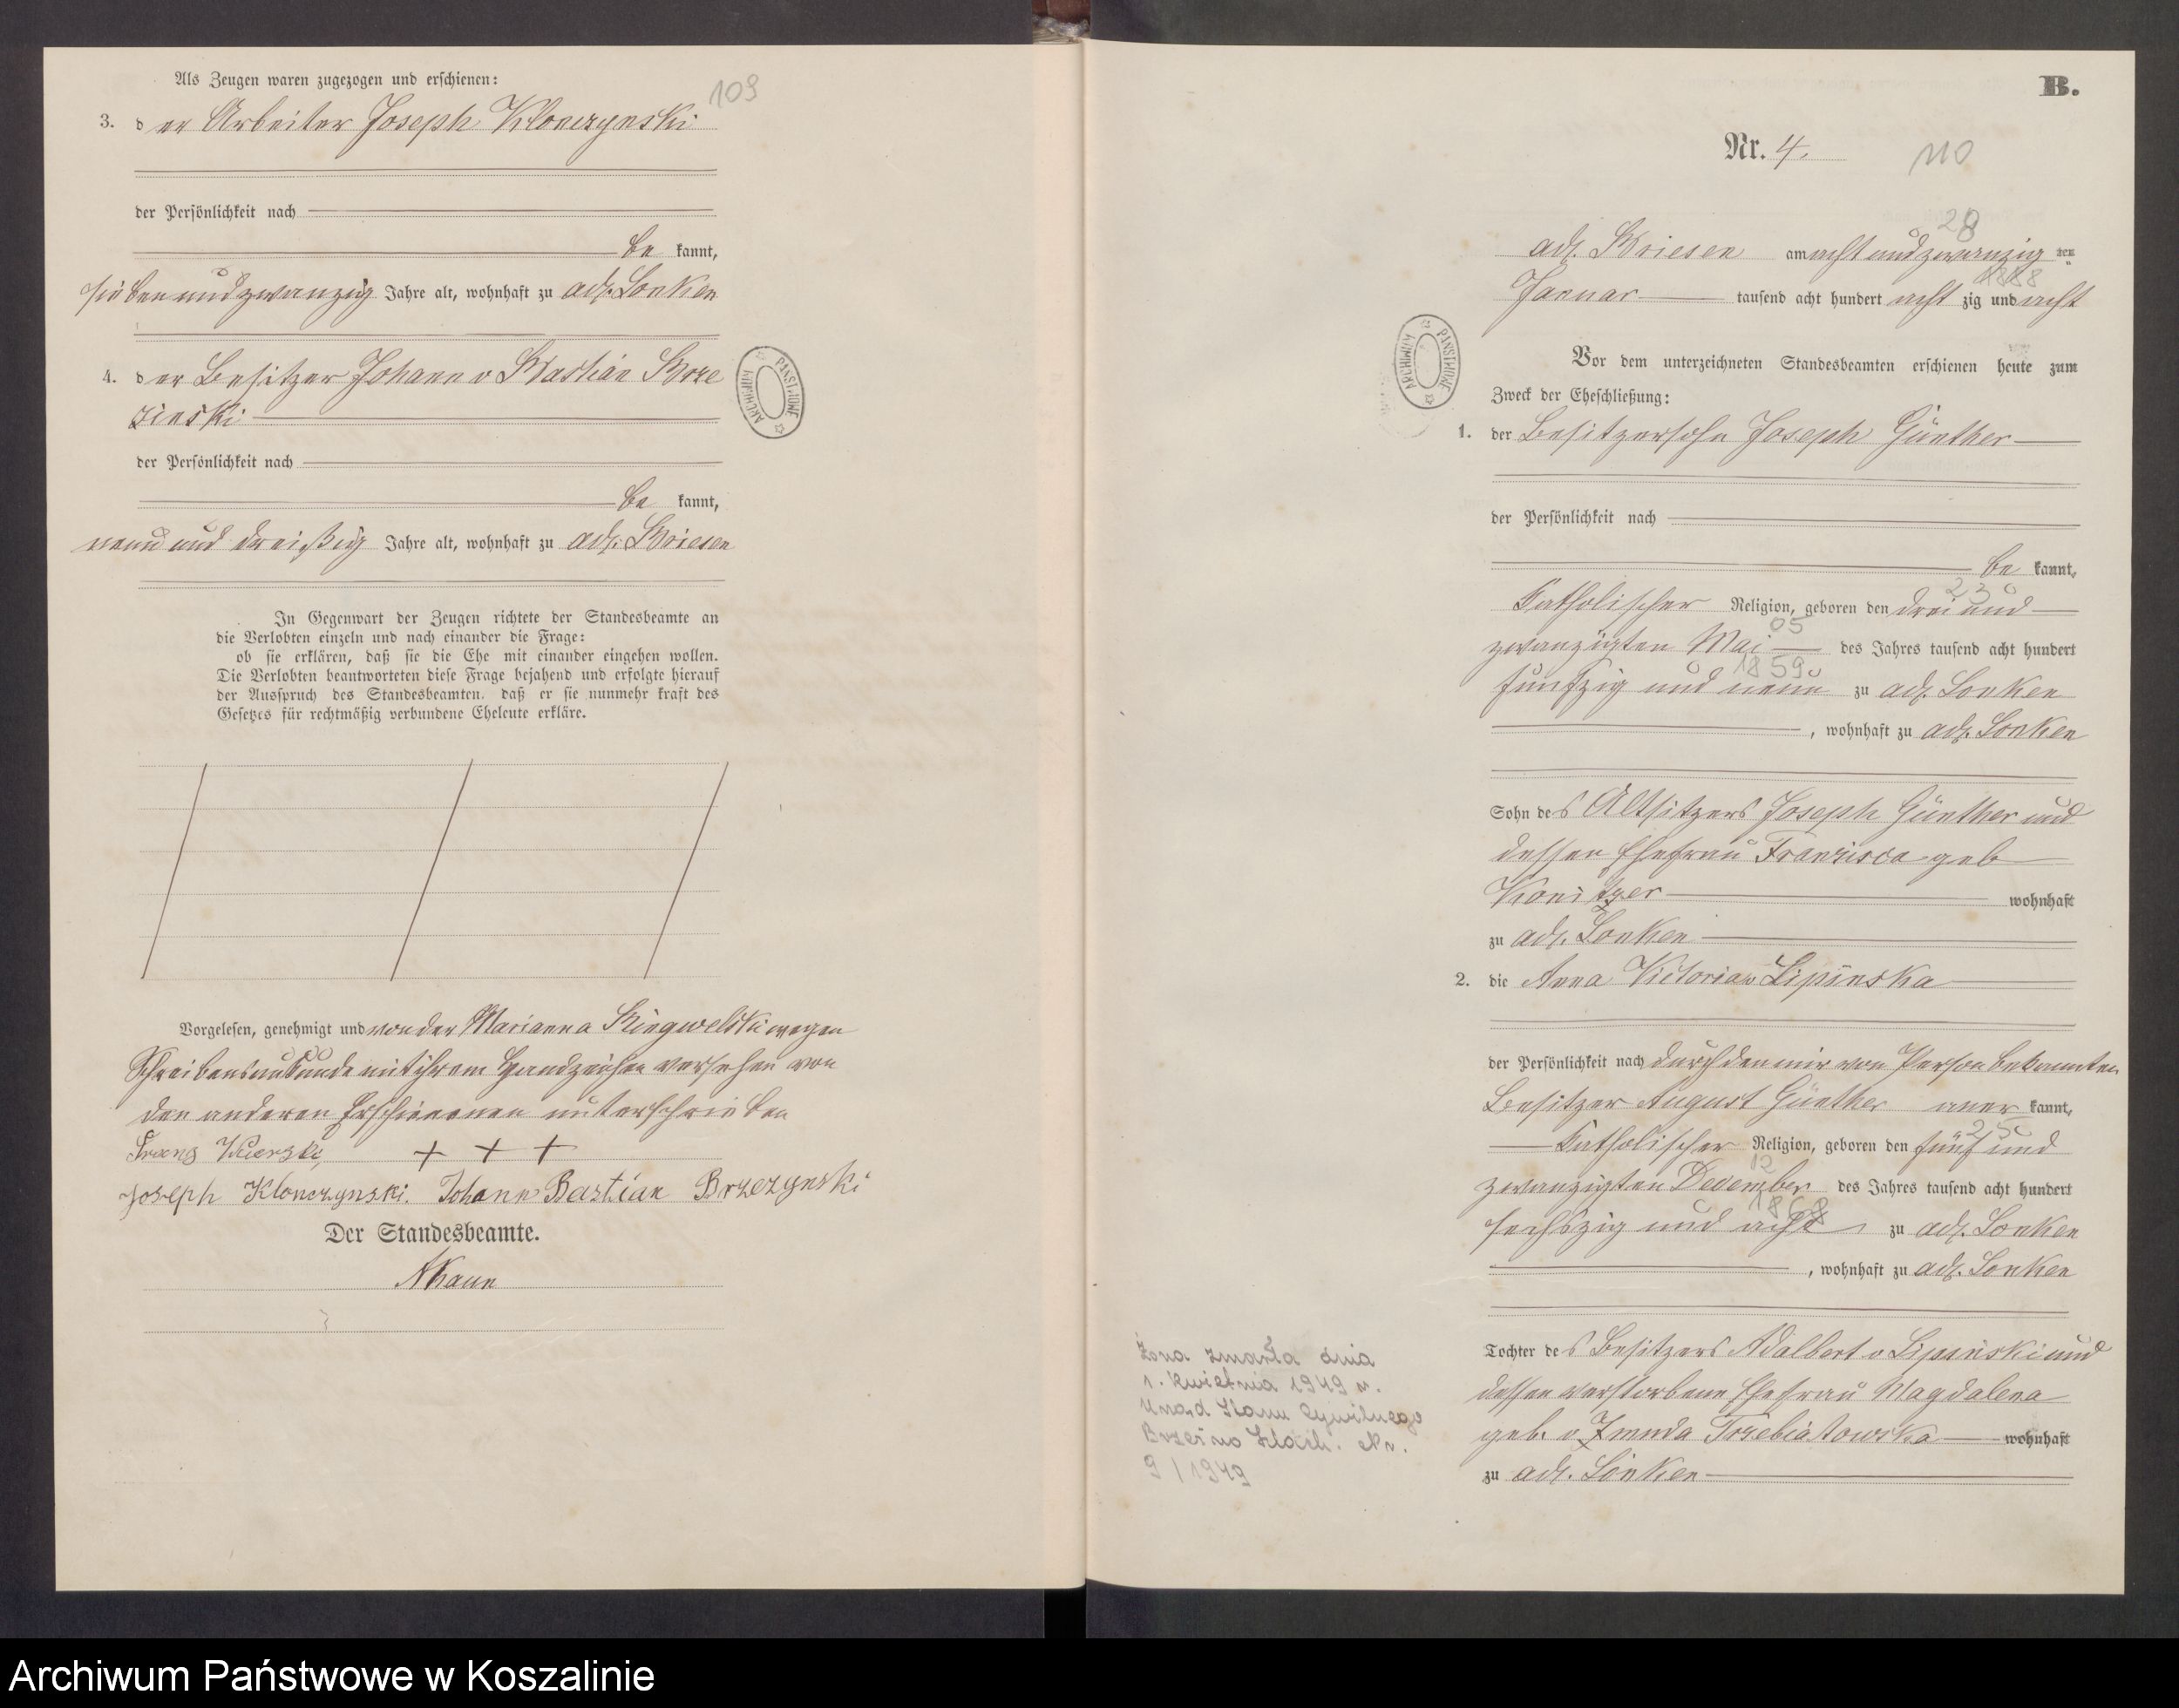 Als Zeugen waren zugezogen und erschienen:
109
3. der Arbeiter Joseph Klonczynski
der Persönlichkeit nach
be kannt,
sieben und zwanzig Jahre alt, wohnhaft zu adl. Lonken
4. der Besitzer Johann v Bastian Brze
zinski
der Persönlichkeit nach
be kannt,
neun und dreißig Jahre alt, wohnhaft zu adl. Briesen
ARCHIWUM PAŃSTWOWE
In Gegenwart der Zeugen richtete der Standesbeamte an
die Verlobten einzeln und nach einander die Frage:
ob sie erklären, daß sie die Ehe mit einander eingehen wollen.
Die Verlobten beantworteten diese Frage bejahend und erfolgte hierauf
der Ausspruch des Standesbeamten. daß er sie nunmehr kraft des
Gesetzes für rechtmäßig verbundene Eheleute erkläre.
Vorgelesen, genehmigt und von der Marianna wegen
Schreibensunkunde mit ihrem Handzeichen versehen von
den anderen Erschienenen unterschrieben
Franz + + +
Joseph Klonczynski. Johann Bastian Brzezynski
Der Standesbeamte.
B.
Nr. 4.
110
28
adl. Briesen am acht und zwanzig ten
1888
Januar tausend acht hundert acht zig und acht
ARCHIWUM PAŃSTWOWE
Vor dem unterzeichneten Standesbeamten erschienen heute zum
Zweck der Eheschließung:
1. der Besitzersohn Joseph Günther
der Persönlichkeit nach
be kannt,
23
katholischer Religion, geboren den drei und
05
zwanzigten Mai des Jahres tausend acht hundert
1859
fünfzig und neun zu adl. Lonken
, wohnhaft zu adl. Lonken
Sohn des Altsitzers Joseph Günther und
dessen Ehefrau Franzisca geb
Konitzer wohnhaft
zu adl. Lonken
2. die Anna Victoria v Lipinska
der Persönlichkeit nach durch den mir von Person bekannten
Besitzer August Günther aner kannt,
25
katholischer Religion, geboren den fünf und
12
zwanzigten December des Jahres tausend acht hundert
1868
sechszig und acht zu adl. Lonken
, wohnhaft zu adl. Lonken
Tochter des Besitzers Adalbert v Lipinski und
dessen verstorbene Ehefrau Magdalena
geb. v Zmuda Trzebiatowska wohnhaft
zu adl. Lonken
Żona zmarła dnia
1. kwietnia 1949 r.
Urząd Stanu Cywilnego
Brzeźno Szlach. Nr.
9/1949
Archiwum Państwowe w Koszalinie